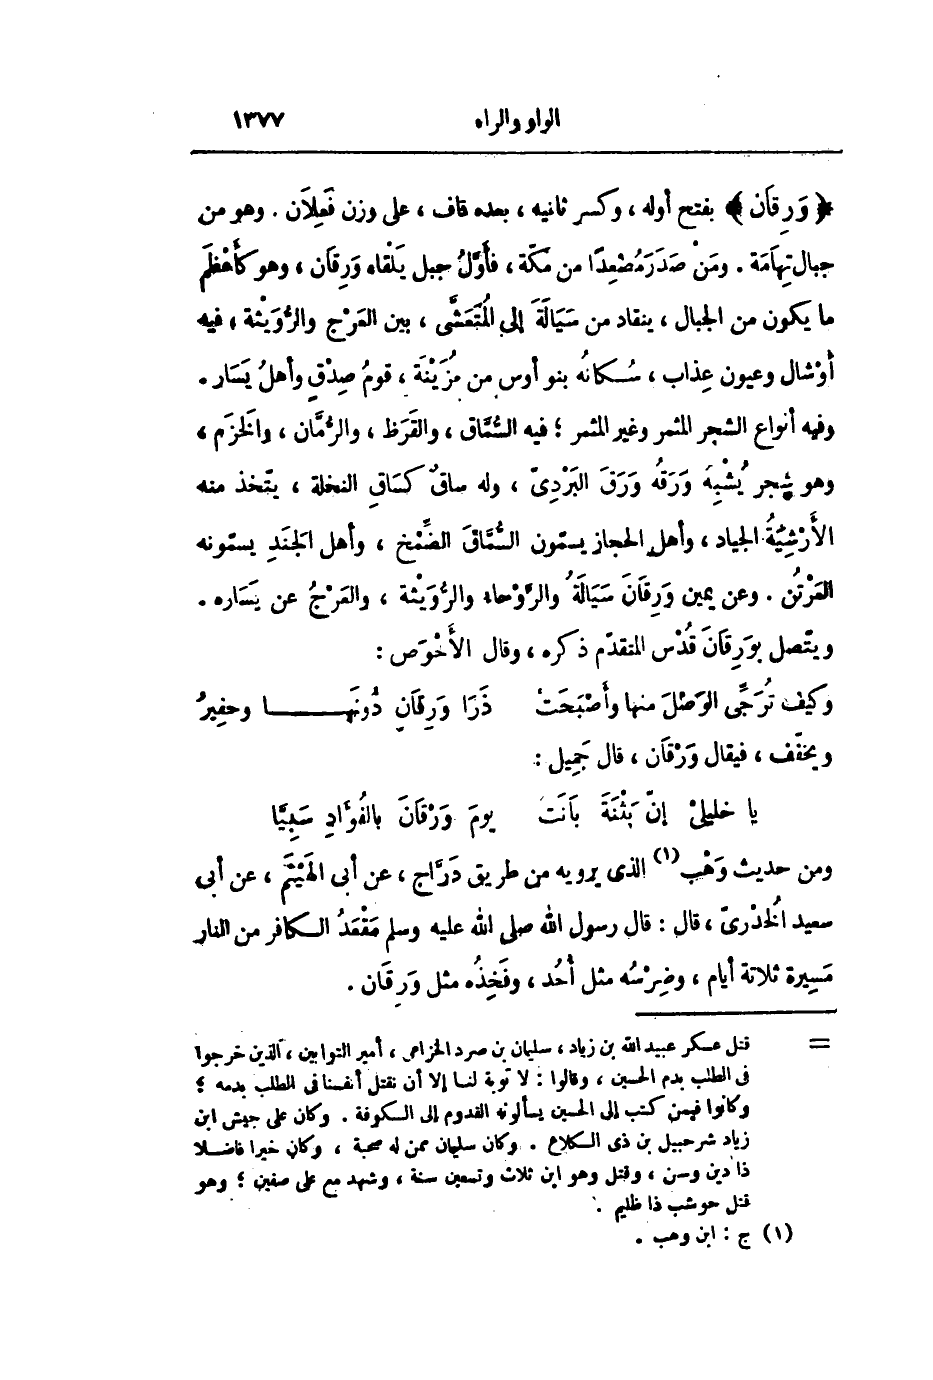 الواو والراء ١٣٧٧
﴿ وَرِقَان ﴾ بفتح أوله ، وكسر ثانيه ، بعده قاف ، على وزن فَعِلَان . وهو من
جبال تِهَامَة . ومَنْ صَدَرَ مُصْعِدًا من مكّة ، فأوّلُ جبل يَلْقاه وَرِقَان ، وهو كأعْظَمِ
ما يكون من الجبال ، ينقاد من سَيَالَةَ إلى المُتَعَشَّى ، بين العَرْج والرُّوَيْثة ، فيه
أوْشال وعيون عِذاب ، سُكانُه بنو أوس من مُزَيْنَة ، قومُ صِدْقٍ وأهلُ يَسَار .
وفيه أنواع الشجر المثمر وغير المثمر ؛ فيه السُّمَّاق ، والقَرَظ ، والرُّمَّان ، والخَزَم ،
وهو شجر يُشْبِهُ وَرَقُه وَرَقَ البَرْدِىّ ، وله ساقٌ كسَاقِ النخلة ، يتّخذ منه
الأَرْشِيَةُ الجياد ، وأهل الحجاز يسمّون السُّمَّاقَ الضِّمْخ ، وأهل الجَنَدِ يسمّونه
العَرْتُن . وعن يمين وَرِقَانَ سَيَالَةُ والرَّوْحاء والرُّوَيْثة ، والعَرْجُ عن يَسَاره .
ويتّصل بوَرِقَانَ قُدْس المتقدّم ذكره ، وقال الأَحْوَص :
وكيف تُرَجِّى الوَصْلَ منها وأَصْبَحَتْ ذَرَا وَرِقَانٍ دُونَهَا وحفِيرُ
ويخفّف ، فيقال وَرْقَان ، قال جَمِيل :
يا خليلىَّ إنّ بَثْنَةَ بَانَت يومَ وَرْقَانَ بالفُؤَادِ سَبِيًّا
ومن حديث وَهْب (١) الذى يرويه من طريق دَرَّاج ، عن أبى الهَيْثَم ، عن أبى
سعيد الخُدْرىّ ، قال : قال رسول الله صلى الله عليه وسلم مَقْعَدُ الكافر من النار
مَسِيرة ثلاثة أيام ، وضِرْسُه مثل أُحُد ، وفَخِذُه مثل وَرِقَان .
= قتل عسكر عبيد الله بن زياد ، سليمان بن صرد الخزاعى ، أمير التوابين ، الذين خرجوا
فى الطلب بدم الحسين ، وقالوا : لا توبة لنا إلا أن نقتل أنفسنا فى الطلب بدمه ؛
وكانوا فيمن كتب إلى الحسين يسألونه القدوم إلى الكوفة . وكان على جيش ابن
زياد شرحبيل بن ذى الكلاع . وكان سليمان ممن له صحبة ، وكان خيرا فاضلا
ذا دين وسن ، وقتل وهو ابن ثلاث وتسعين سنة ، وشهد مع على صفين ؛ وهو
قتل حوشب ذا ظليم .
(١) ج : ابن وهب .